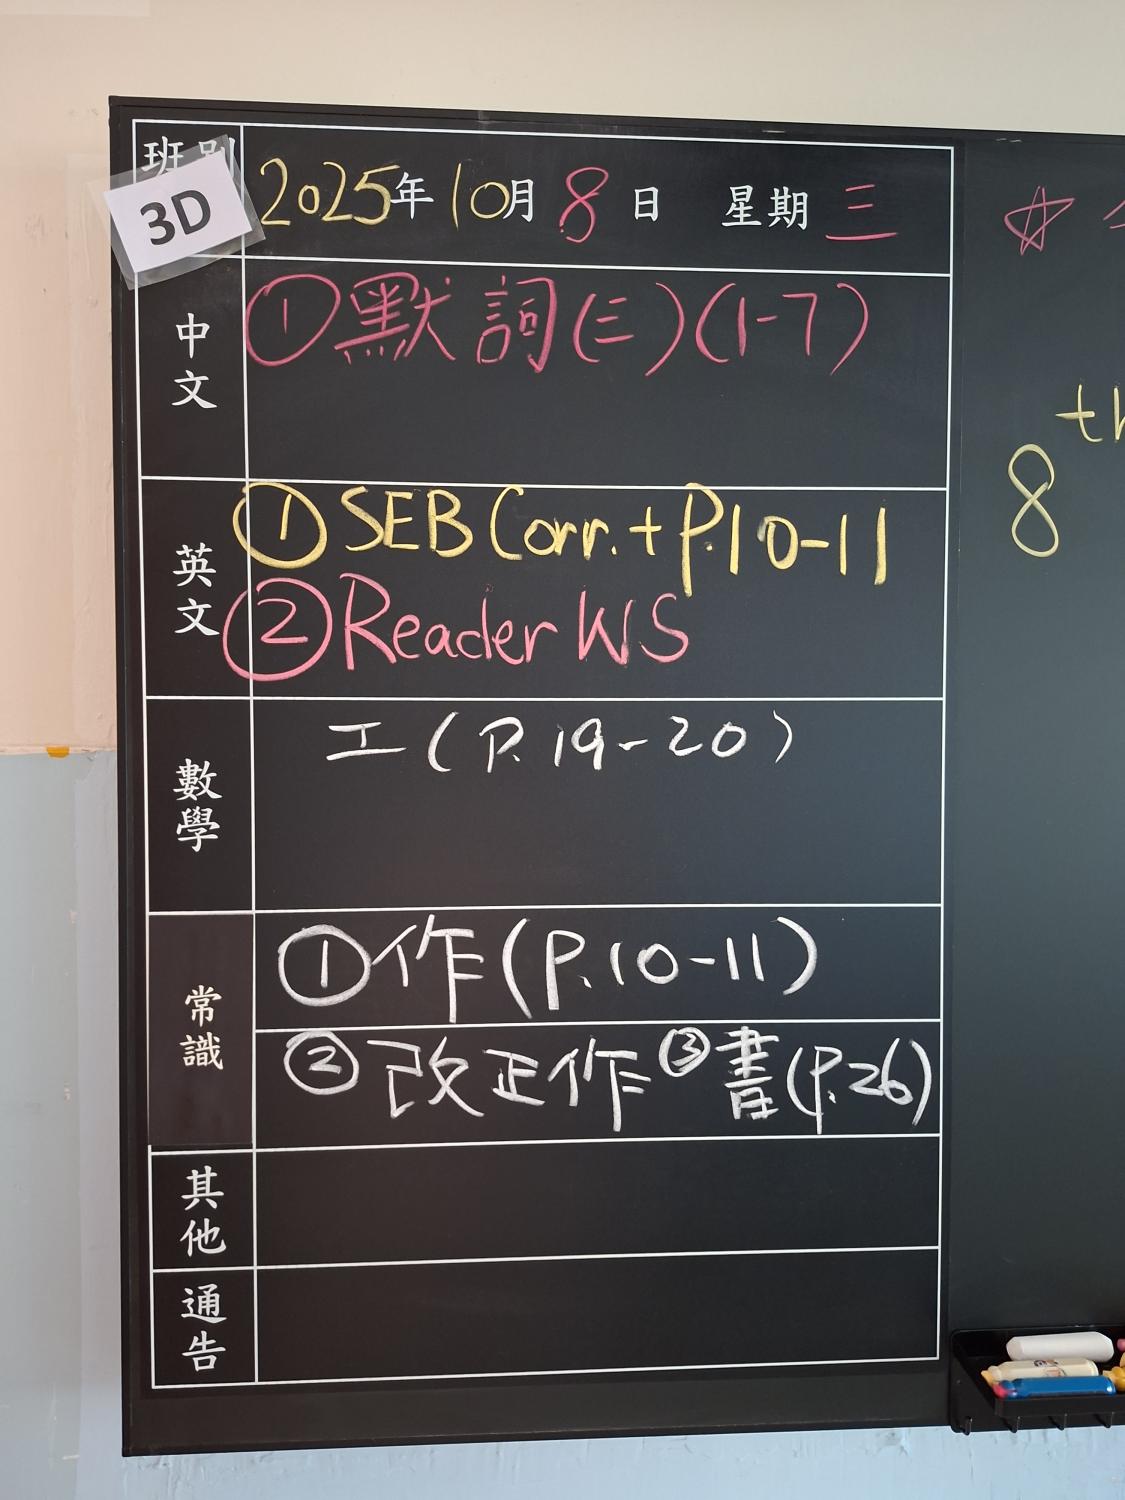 班別
3D
2025年10月8日 星期三
中文
①默詞(三)(1-7)
英文
①SEB Corr.+P.10-11
②Reader WS
數學
工(P.19-20)
常識
①作(P.10-11)
②改正作③書(P.26)
其他
通告
8th